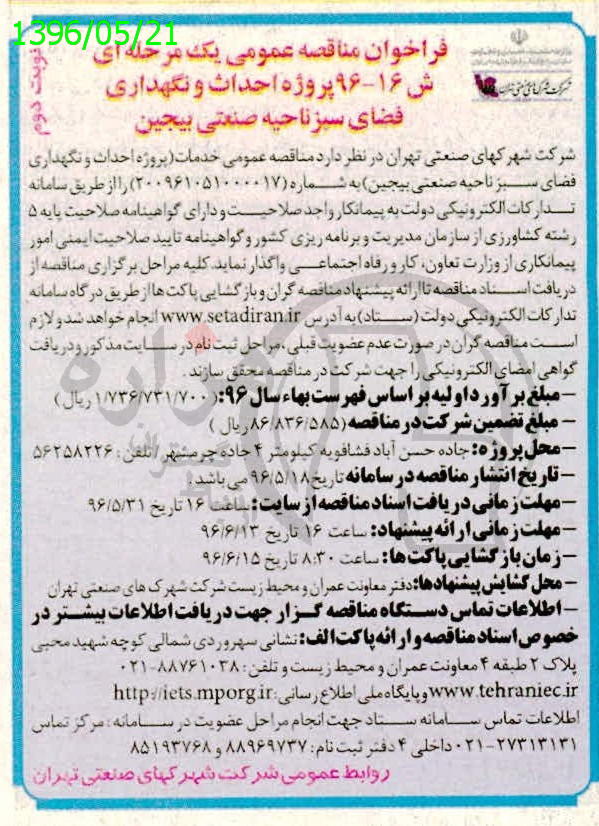 1396/05/21
نوبت دوم
فراخوان مناقصه عمومی یک مرحله ای
ش ۱۶-۹۶ پروژه احداث و نگهداری
فضای سبز ناحیه صنعتی بیجین
شرکت شهرکهای صنعتی تهران
شرکت شهرکهای صنعتی تهران در نظر دارد مناقصه عمومی خدمات (پروژه احداث و نگهداری
فضای سبز ناحیه صنعتی بیجین) به شماره (۲۰۰۹۶۱۰۵۱۰۰۰۰۱۷) را از طریق سامانه
تدارکات الکترونیکی دولت به پیمانکار واجد صلاحیت و دارای گواهینامه صلاحیت پایه ۵
رشته کشاورزی از سازمان مدیریت و برنامه ریزی کشور و گواهینامه تایید صلاحیت ایمنی امور
پیمانکاری از وزارت تعاون، کار و رفاه اجتماعی واگذار نماید. کلیه مراحل برگزاری مناقصه از
دریافت اسناد مناقصه تا ارائه پیشنهاد مناقصه گران و بازگشایی پاکت ها از طریق درگاه سامانه
تدارکات الکترونیکی دولت (ستاد) به آدرس www.setadiran.ir انجام خواهد شد و لازم
است مناقصه گران در صورت عدم عضویت قبلی، مراحل ثبت نام در سایت مذکور و دریافت
گواهی امضای الکترونیکی را جهت شرکت در مناقصه محقق سازند.
– مبلغ برآورد اولیه بر اساس فهرست بهاء سال ۹۶: (۱/۷۳۶/۷۳۱/۷۰۰ ریال)
– مبلغ تضمین شرکت در مناقصه (۸۶/۸۳۶/۵۸۵ ریال)
– محل پروژه: جاده حسن آباد فشافویه کیلومتر ۴ جاده چرمشهر / تلفن: ۵۶۲۵۸۲۲۶
– تاریخ انتشار مناقصه در سامانه تاریخ ۹۶/۵/۱۸ می باشد.
– مهلت زمانی دریافت اسناد مناقصه از سایت: ساعت ۱۶ تاریخ ۹۶/۵/۳۱
– مهلت زمانی ارائه پیشنهاد: ساعت ۱۶ تاریخ ۹۶/۶/۱۳
– زمان بازگشایی پاکت ها: ساعت ۸:۳۰ تاریخ ۹۶/۶/۱۵
– محل گشایش پیشنهادها: دفتر معاونت عمران و محیط زیست شرکت شهرک های صنعتی تهران
– اطلاعات تماس دستگاه مناقصه گزار جهت دریافت اطلاعات بیشتر در
خصوص اسناد مناقصه و ارائه پاکت الف: نشانی سهروردی شمالی کوچه شهید محبی
پلاک ۲ طبقه ۴ معاونت عمران و محیط زیست و تلفن: ۸۸۷۶۱۰۳۸-۰۲۱
www.tehraniec.ir و پایگاه ملی اطلاع رسانی: http://iets.mporg.ir
اطلاعات تماس سامانه ستاد جهت انجام مراحل عضویت در سامانه: مرکز تماس
۲۷۳۱۳۱۳۱-۰۲۱ داخلی ۴ دفتر ثبت نام: ۸۸۹۶۹۷۳۷ و ۸۵۱۹۳۷۶۸
روابط عمومی شرکت شهرکهای صنعتی تهران